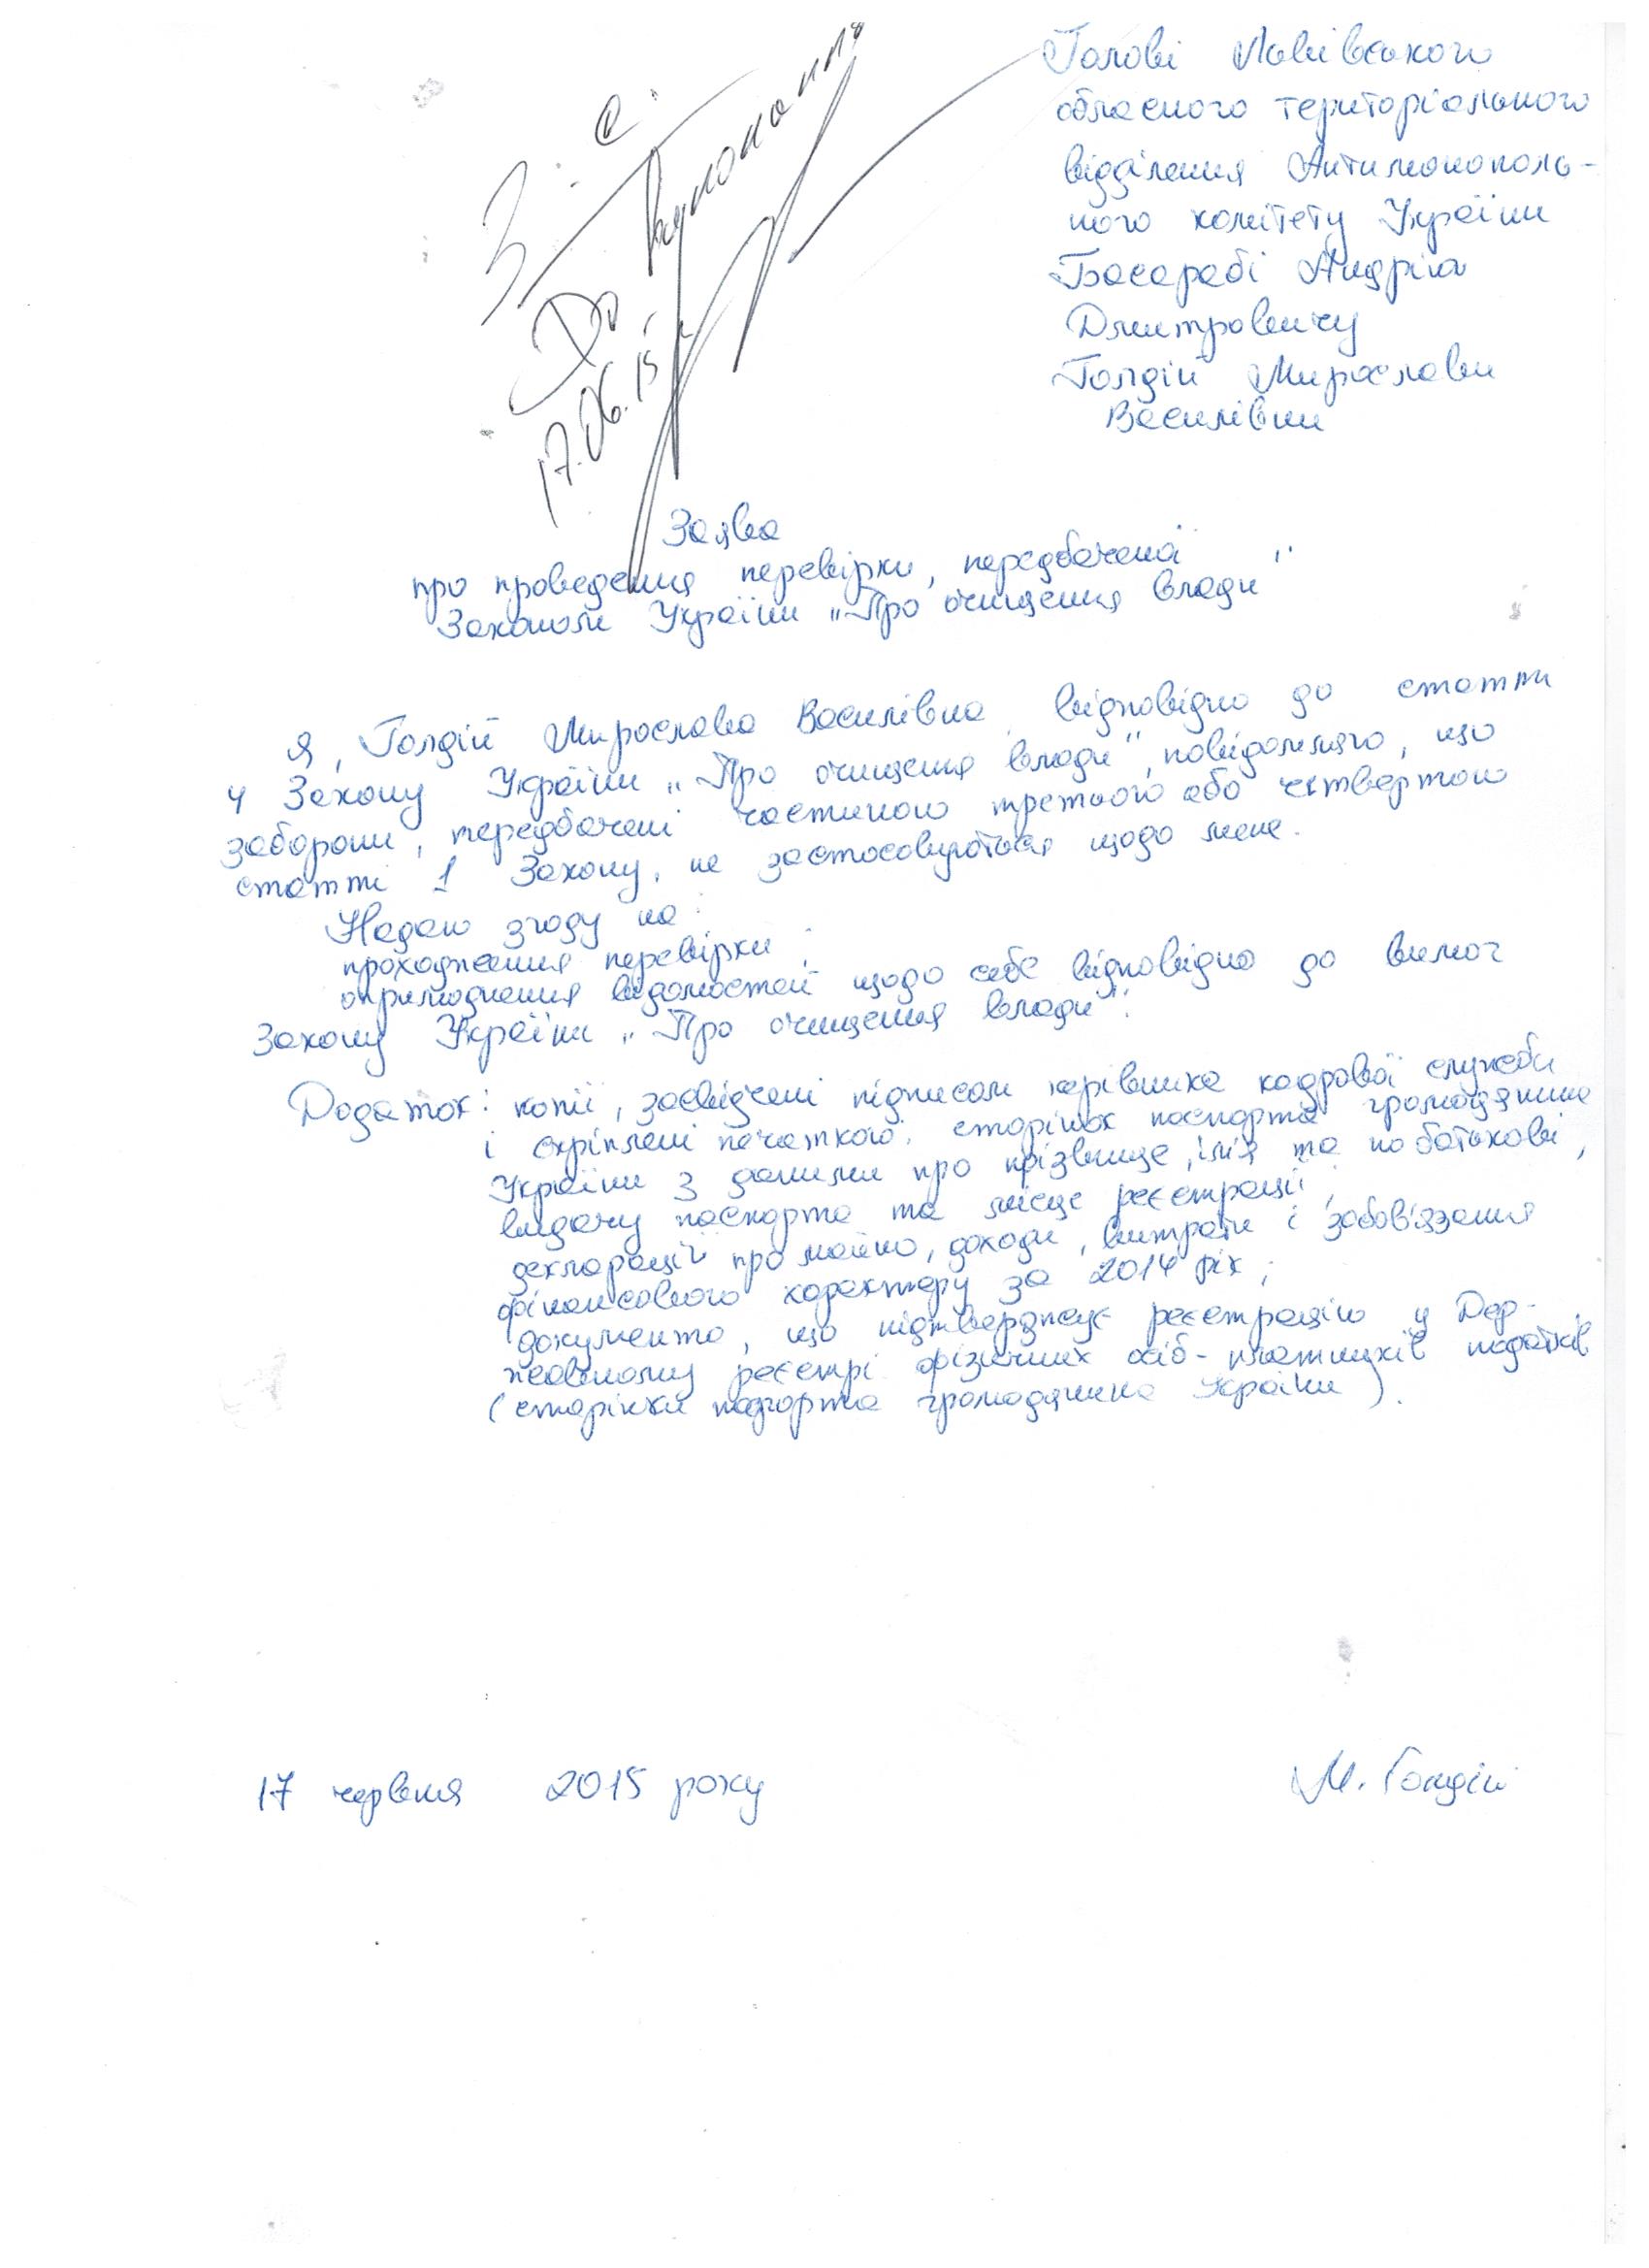 Голові Львівського
обласного територіального
відділення Антимонополь-
ного комітету України
Басарабі Андрію
Дмитровичу
Голдій Мирослави
Василівни
З. С.
До виконання
17.06.15
Заява
про проведення перевірки, передбаченої
Законом України „Про очищення влади"
Я, Голдій Мирослава Василівна, відповідно до статті
4 Закону України „Про очищення влади", повідомляю, що
заборони, передбачені частиною третьою або четвертою
статті 1 Закону, не застосовуються щодо мене.
Надаю згоду на:
проходження перевірки;
оприлюднення відомостей щодо себе відповідно до вимог
Закону України „Про очищення влади".
Додаток: копії, засвідчені підписом керівника кадрової служби
і скріплені печаткою: сторінок паспорта громадянина
України з даними про прізвище, ім'я та по батькові,
видачу паспорта та місце реєстрації;
декларації про майно, доходи, витрати і зобов'язання
фінансового характеру за 2014 рік;
документа, що підтверджує реєстрацію у Дер-
жавному реєстрі фізичних осіб-платників податків
(сторінки паспорта громадянина України).
17 червня 2015 року М. Голдій